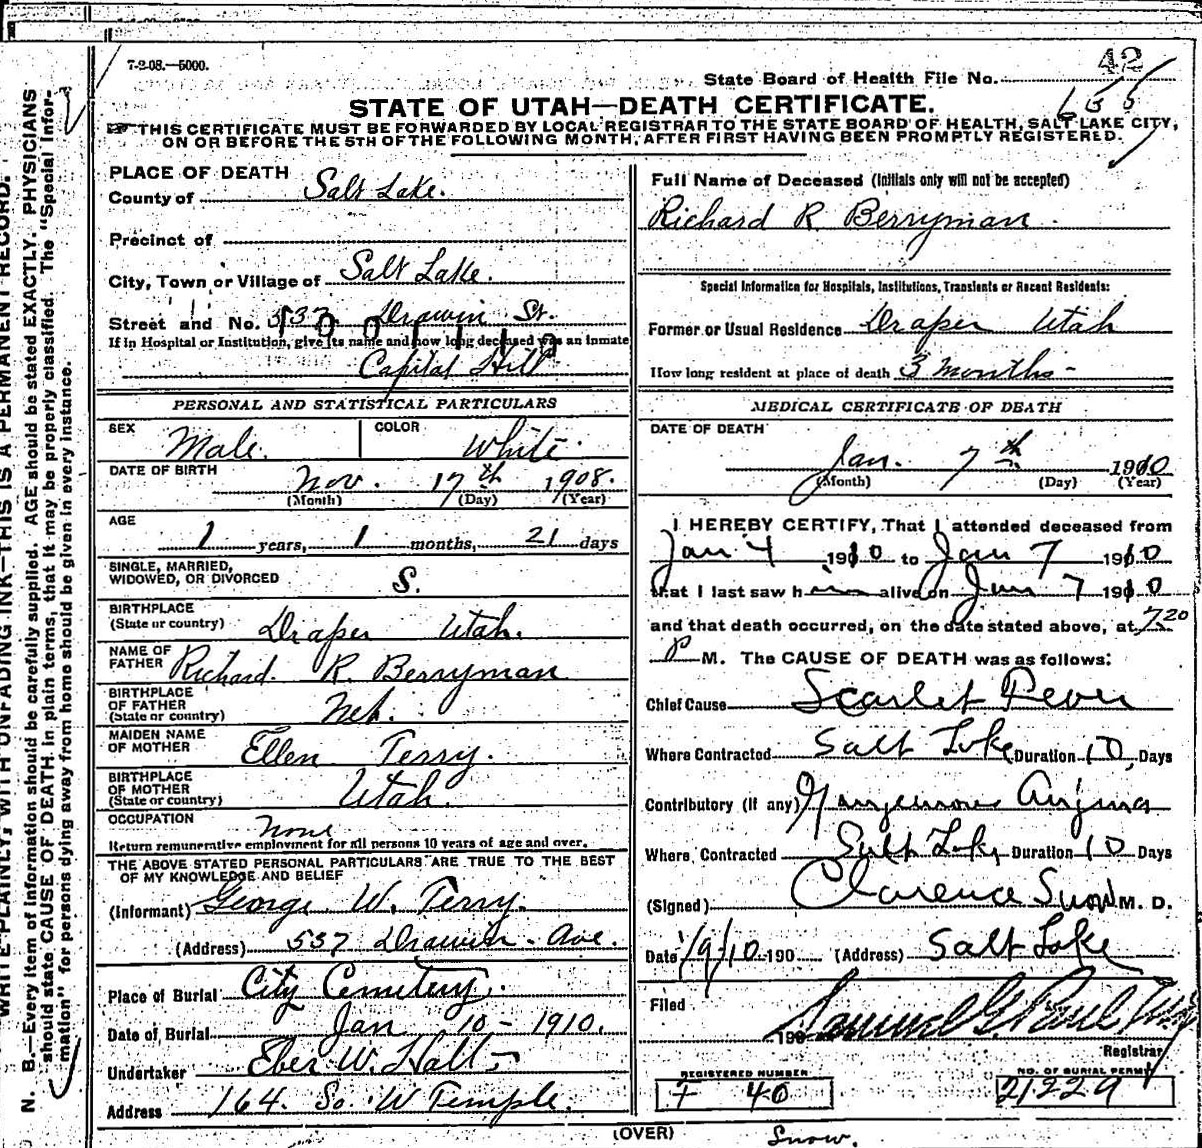 7-2-08.—5000.
42
State Board of Health File No.
655
STATE OF UTAH—DEATH CERTIFICATE.
THIS CERTIFICATE MUST BE FORWARDED BY LOCAL REGISTRAR TO THE STATE BOARD OF HEALTH, SALT LAKE CITY,
ON OR BEFORE THE 5TH OF THE FOLLOWING MONTH, AFTER FIRST HAVING BEEN PROMPTLY REGISTERED.
WRITE PLAINLY, WITH UNFADING INK—THIS IS A PERMANENT RECORD.
N. B.—Every item of information should be carefully supplied. AGE should be stated EXACTLY. PHYSICIANS
should state CAUSE OF DEATH in plain terms, that it may be properly classified. The "Special Infor-
mation" for persons dying away from home should be given in every instance.
PLACE OF DEATH
County of Salt Lake.
Precinct of
City, Town or Village of Salt Lake.
Street and No. 537 Drawin St.
If in Hospital or Institution, give its name and how long deceased was an inmate
Capital Hill
PERSONAL AND STATISTICAL PARTICULARS
SEX Male. COLOR White
DATE OF BIRTH Nov. 17th 1908.
(Month) (Day) (Year)
AGE
1 years, 1 months, 21 days
SINGLE, MARRIED,
WIDOWED, OR DIVORCED S.
BIRTHPLACE
(State or country) Draper Utah.
NAME OF
FATHER Richard R. Berryman
BIRTHPLACE
OF FATHER
(State or country) Neb.
MAIDEN NAME
OF MOTHER Ellen Terry.
BIRTHPLACE
OF MOTHER
(State or country) Utah.
OCCUPATION None
Return remunerative employment for all persons 10 years of age and over.
THE ABOVE STATED PERSONAL PARTICULARS ARE TRUE TO THE BEST
OF MY KNOWLEDGE AND BELIEF
(Informant) George W. Terry.
(Address) 537 Drawin Ave.
Place of Burial City Cemetery.
Date of Burial Jan 10 - 1910.
Undertaker Eber W. Hall
Address 164 So. W Temple.
Full Name of Deceased (Initials only will not be accepted)
Richard R Berryman
Special Information for Hospitals, Institutions, Transients or Recent Residents:
Former or Usual Residence Draper Utah
How long resident at place of death 3 months -
MEDICAL CERTIFICATE OF DEATH
DATE OF DEATH
Jan. 7th 1910
(Month) (Day) (Year)
I HEREBY CERTIFY, That I attended deceased from
Jan 4 1910 to Jan 7 1910
that I last saw him alive on Jan 7 1910
and that death occurred, on the date stated above, at 7.20
P M. The CAUSE OF DEATH was as follows:
Chief Cause Scarlet Fever
Where Contracted Salt Lake Duration 10 Days
Contributory (if any) Gangrenous Angina
Where Contracted Salt Lake Duration 10 Days
(Signed) Clarence Snow M. D.
Date 1/9/10 190 (Address) Salt Lake
Filed
190 Samuel G. Paul
Registrar
REGISTERED NUMBER
F 40
NO. OF BURIAL PERMIT
21229
(OVER)
Snow.